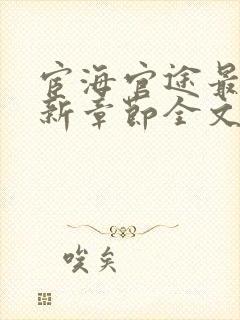 宦海官途最
新章节全文
唉矣